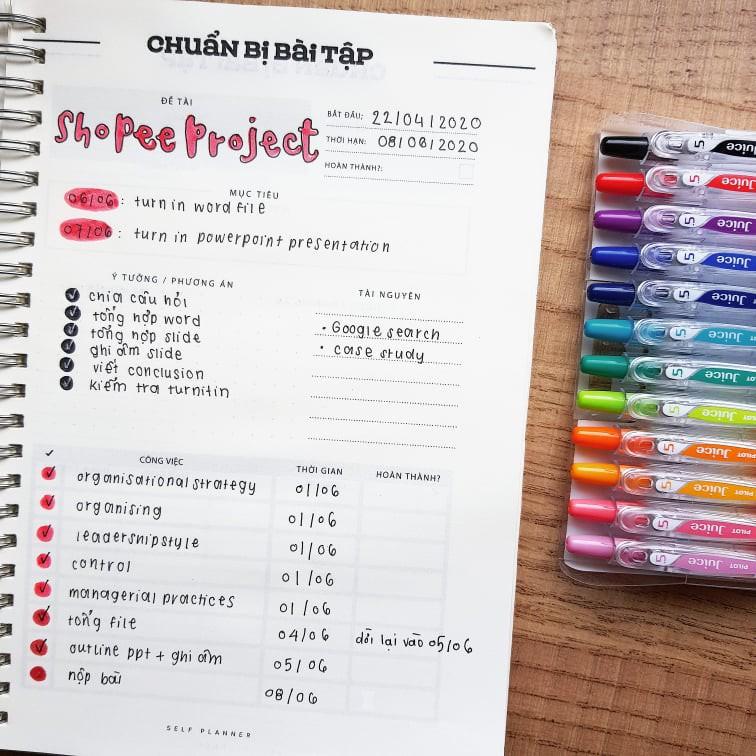 CHUẨN BỊ BÀI TẬP
ĐỀ TÀI
Shopee Project
BẮT ĐẦU: 22/04/2020
THỜI HẠN: 08/08/2020
HOÀN THÀNH?:
MỤC TIÊU
06/06: turn in word file
07/06: turn in powerpoint presentation
Ý TƯỞNG / PHƯƠNG ÁN
chia câu hỏi
tổng hợp word
tổng hợp slide
ghi âm slide
viết conclusion
kiểm tra turnitin
TÀI NGUYÊN
• Google search
• case study
✓ CÔNG VIỆC THỜI GIAN HOÀN THÀNH?
✓ organisational strategy 01/06
✓ organising 01/06
✓ leadership style 01/06
✓ control 01/06
✓ managerial practices 01/06
✓ tổng file 04/06 dời lại vào 05/06
✓ outline ppt + ghi âm 05/06
nộp bài 08/06
SELF PLANNER
5 Juice
5 Juice
5 Juice
5 Juice
5 Juice
5 Juice PILOT
5 Juice PILOT
5 Juice PILOT
5 Juice PILOT
5 Juice PILOT
5 Juice PILOT
5 Juice PILOT